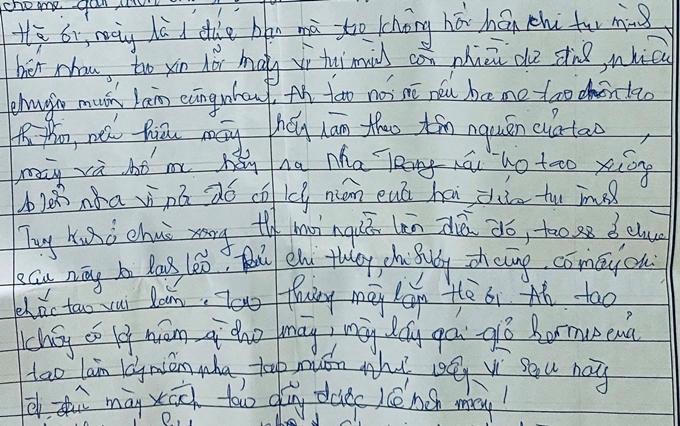 cho mẹ
Hà ơi, mày là 1 đứa bạn mà tao không hối hận khi tụi mình
biết nhau, tao xin lỗi mày vì tụi mình còn nhiều dự định, nhiều
chuyện muốn làm cùng nhau. Ah tao nói mẹ nếu ba mẹ tao chôn tao
thì thôi, nếu thiêu mày hãy làm theo tâm nguyện của tao,
mày và bố mẹ hãy ra Nha Trang rải tro tao xuống
biển nha vì nơi đó có kỷ niệm của hai đứa tụi mình
ở chùa xong thì mọi người làm điều đó, tao sợ ở chùa
sau này bị lạc lõng. chị thuỳ, chị đi cùng. có mấy chị
chắc tao vui lắm. tao thương mày lắm Hà ơi. Ah tao
không có kỷ niệm gì cho mày, mày lấy cái giỏ hermes của
tao làm kỷ niệm nha tao muốn như vậy vì sau này
đi đâu mày xách tao cũng được kế bên mày!